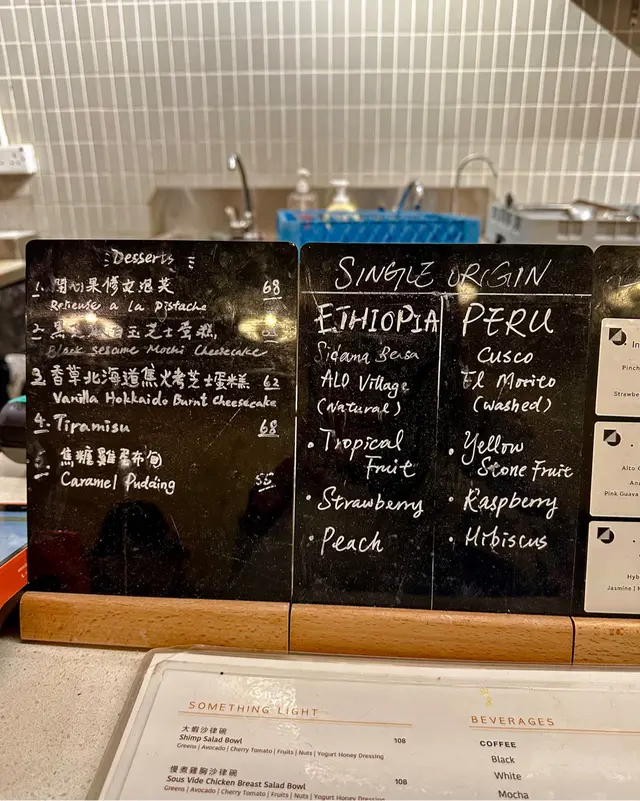 Desserts
1. 開心果修女泡芙 68
Relieuse a la Pistache
2. 黑芝麻白玉芝士蛋糕
Black Sesame Mochi Cheesecake
3. 香草北海道焦火烤芝士蛋糕 62
Vanilla Hokkaido Burnt Cheesecake
4. Tiramisu 68
5. 焦糖雞蛋布甸
Caramel Pudding 55
SINGLE ORIGIN
ETHIOPIA
Sidama Bensa
ALO Village
(Natural)
• Tropical
Fruit
• Strawberry
• Peach
PERU
Cusco
El Morito
(Washed)
• Yellow
Stone Fruit
• Raspberry
• Hibiscus
In
Pinch
Strawbe
Alto
Ana
Pink Guava
Hyb
Jasmine | H
SOMETHING LIGHT
大蝦沙律碗
Shrimp Salad Bowl 108
Greens | Avocado | Cherry Tomato | Fruits | Nuts | Yogurt Honey Dressing
慢煮雞胸沙律碗
Sous Vide Chicken Breast Salad Bowl 108
Greens | Avocado | Cherry Tomato | Fruits | Nuts | Yogurt Honey Dressing
BEVERAGES
COFFEE
Black
White
Mocha